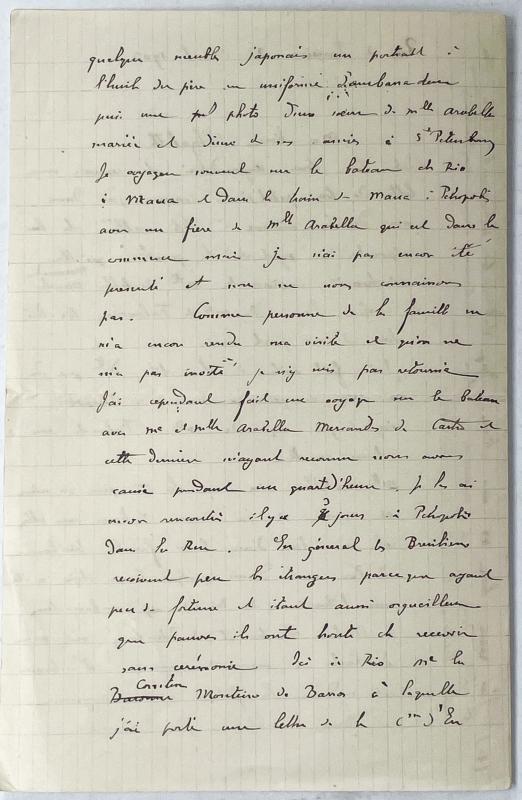 quelques meubles japonais un portrait à
l'huile du père en uniforme d'ambassadeur
puis une ptt photo d'une sœur de Mlle Arabella
mariée et d'une de ses amies à St Petersbourg
Je voyage souvent sur le bateau de Rio
à Maua et dans le train de Maua à Petropolis
avec un frère de Mlle Arabella qui est dans le
commerce mais je n'ai pas encore été
présenté et nous ne nous connaissons
pas. Comme personne de la famille ne
m'a encore rendu ma visite et qu'on ne
m'a pas invité, je n'y suis pas retourné
J'ai cependant fait un voyage sur le bateau
avec Me et Mlle Arabella Mercandes de Castro et
cette dernière m'ayant reconnu nous avons
causé pendant un quart d'heure. Je les ai
encore rencontrés il y a 3 jours à Petropolis
dans la Rue. En général les Brésiliens
reçoivent peu les étrangers parce que ayant
peu de fortune et étant aussi orgueilleux
que pauvres ils ont honte de recevoir
sans cérémonie Ici à Rio Me la
Baronne Comtesse Monteiro de Barros à laquelle
j'ai porté une lettre de la Csse d'Eu